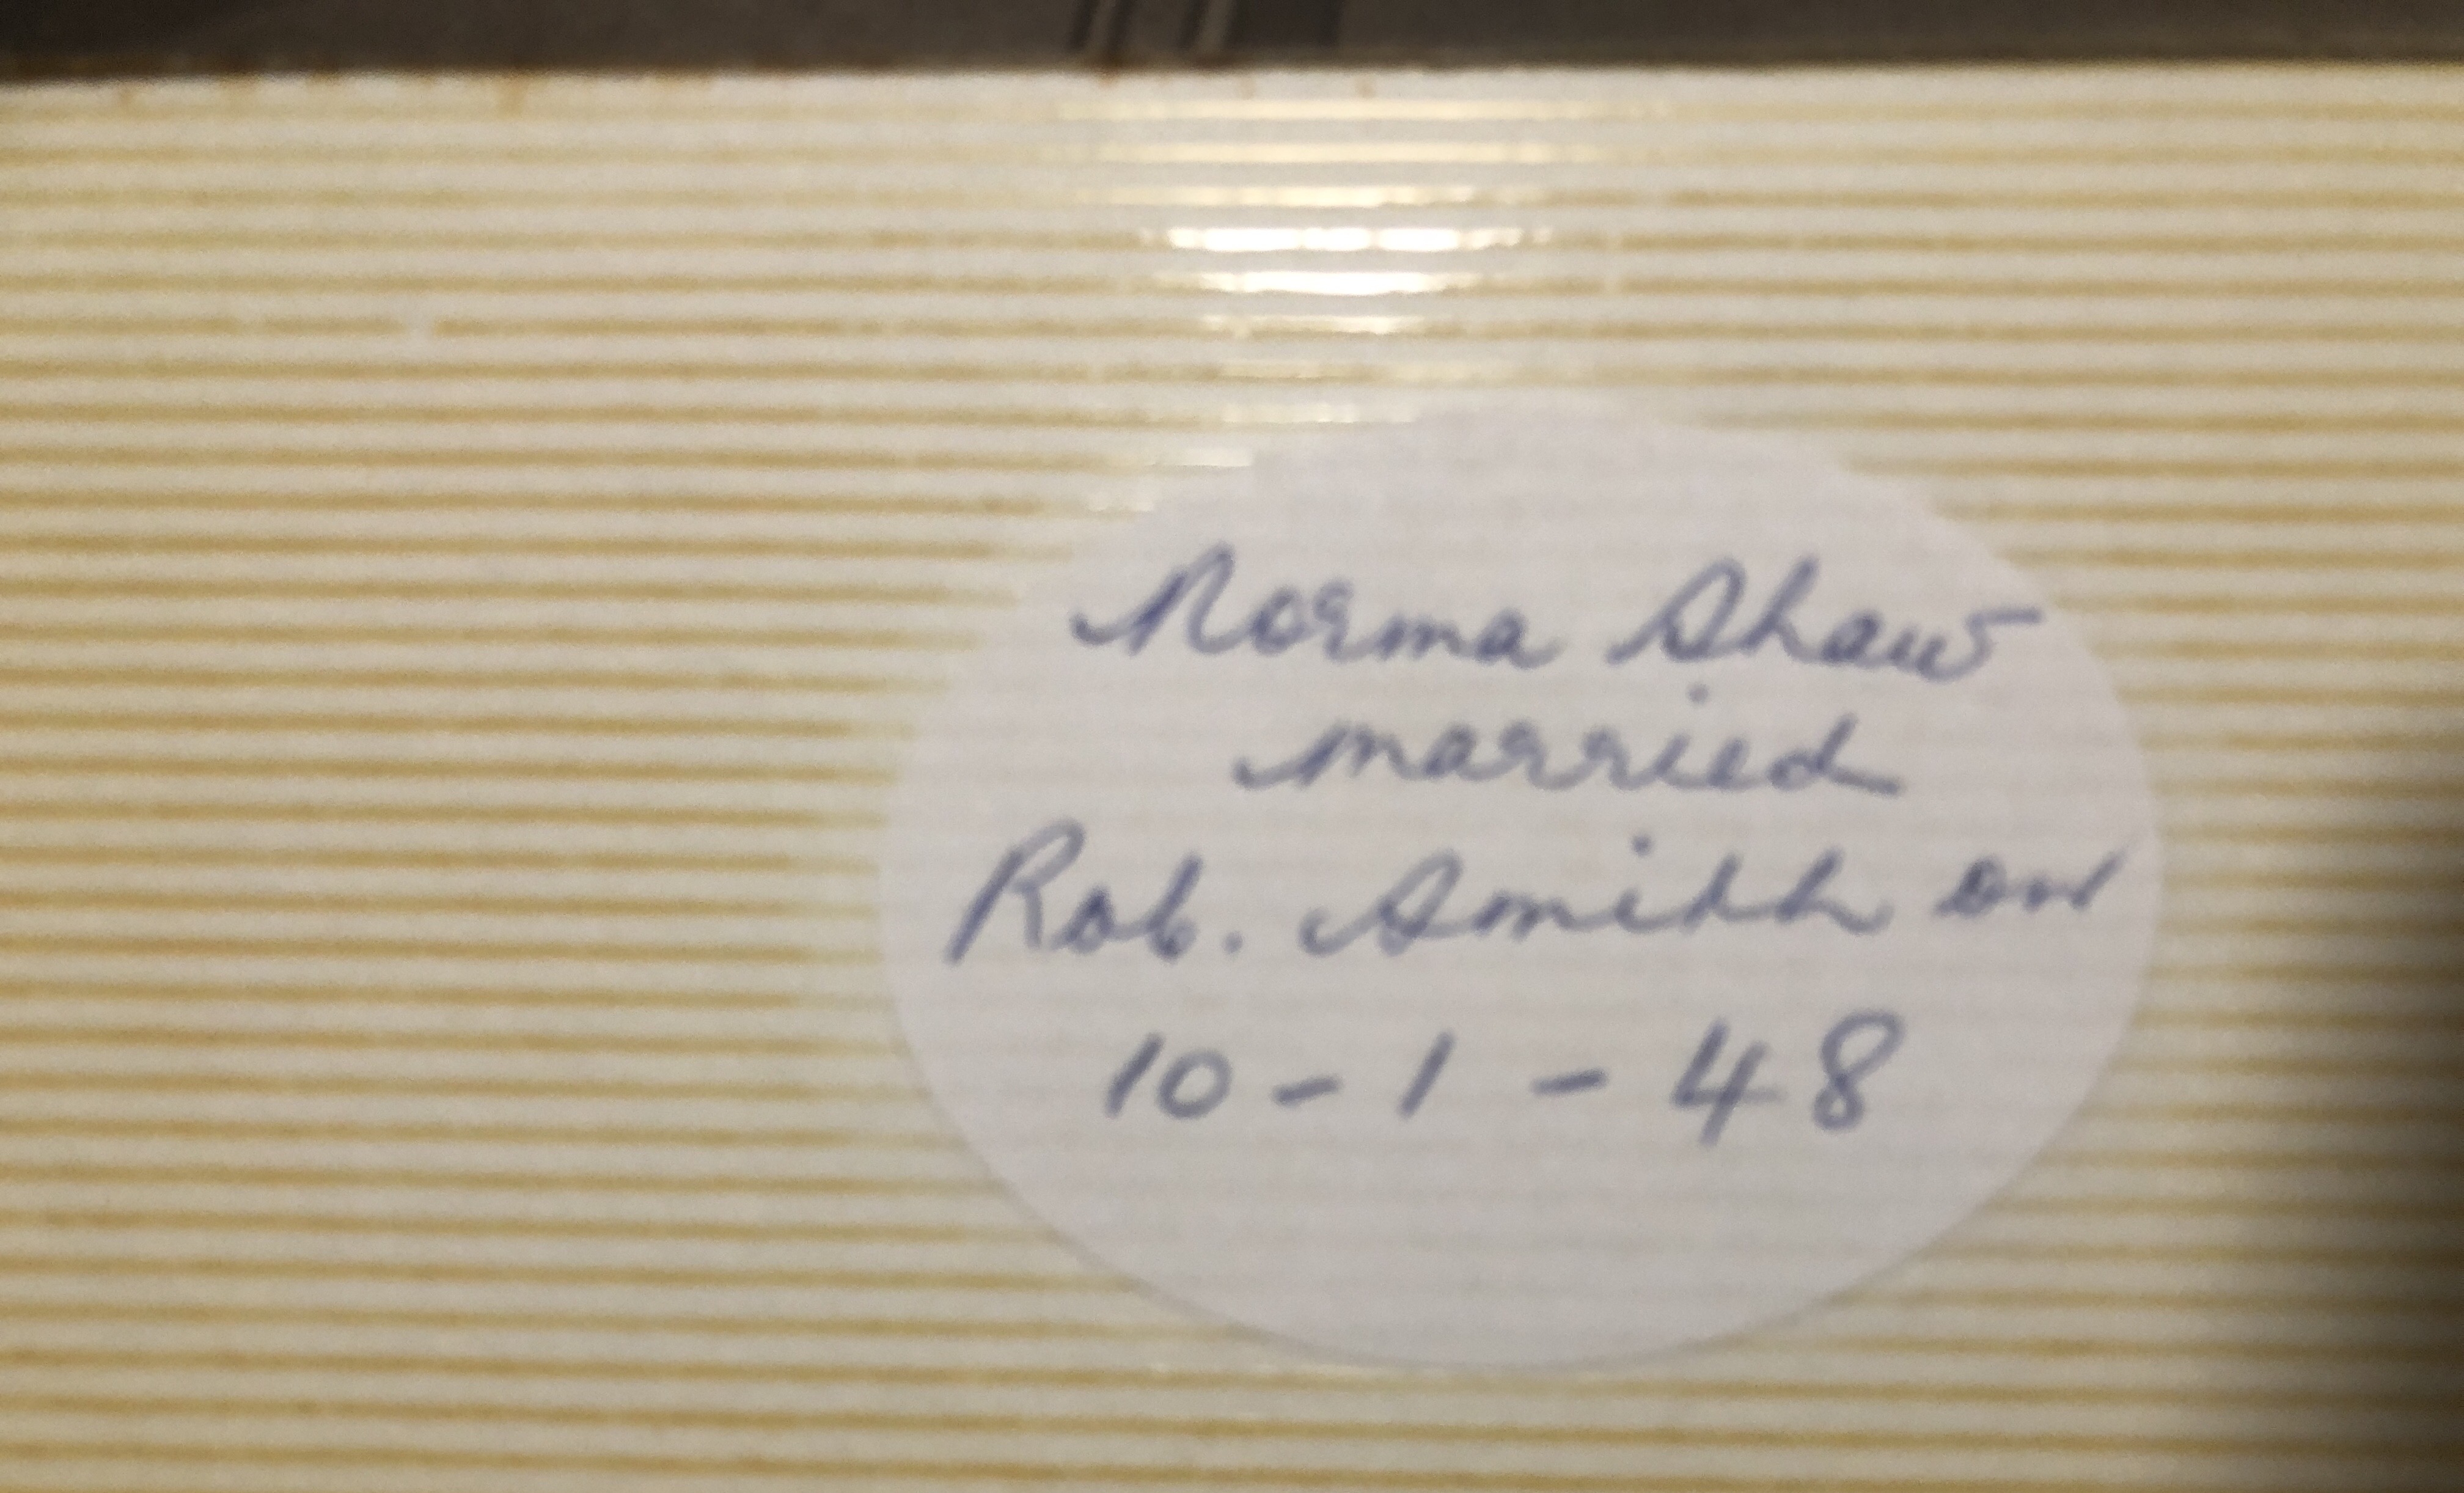 Norma Shaw
married
Rob. Smith on
10-1-48